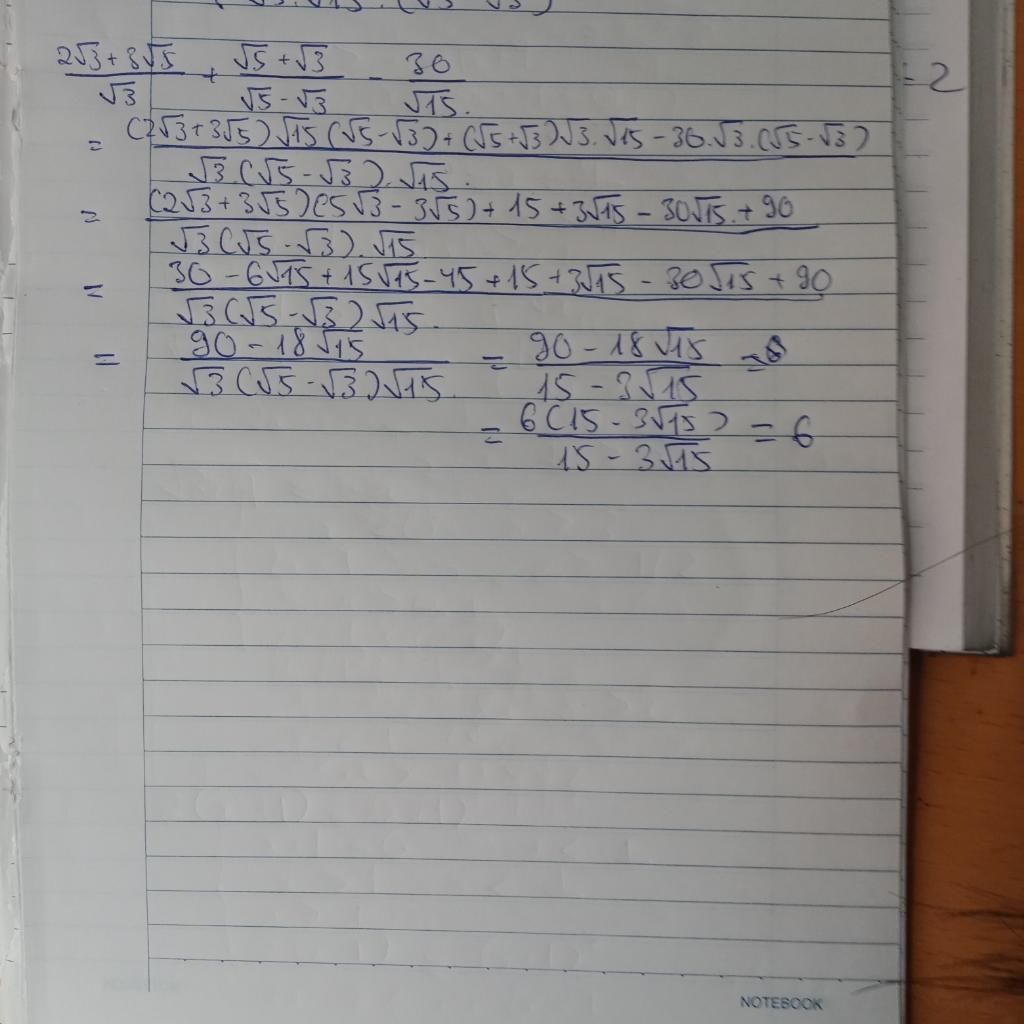 = 2
(2√3 + 3√5)/√3 + (√5 + √3)/(√5 - √3) - 30/√15.
= ((2√3 + 3√5)√15(√5 - √3) + (√5 + √3)√3.√15 - 30.√3.(√5 - √3))/(√3.(√5 - √3).√15.)
= ((2√3 + 3√5)(5√3 - 3√5) + 15 + 3√15 - 30√15 + 90)/(√3(√5 - √3).√15)
= (30 - 6√15 + 15√15 - 45 + 15 + 3√15 - 30√15 + 90)/(√3(√5 - √3)√15.)
= (90 - 18√15)/(√3(√5 - √3)√15.) = (90 - 18√15)/(15 - 3√15) =
= 6(15 - 3√15)/(15 - 3√15) = 6
NOTEBOOK